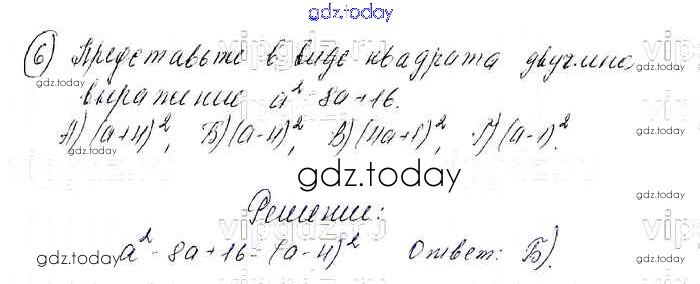 gdz.today
6) Представьте в виде квадрата двучлена
выражение a² - 8a + 16.
А) (a+4)², Б) (a-4)², В) (4a+1)², Г) (a-1)².
gdz.today
Решение:
a² - 8a + 16 = (a-4)² Ответ: Б).
gdz.today
gdz.today
gdz.today
gdz.today
gdz.today
gdz.today